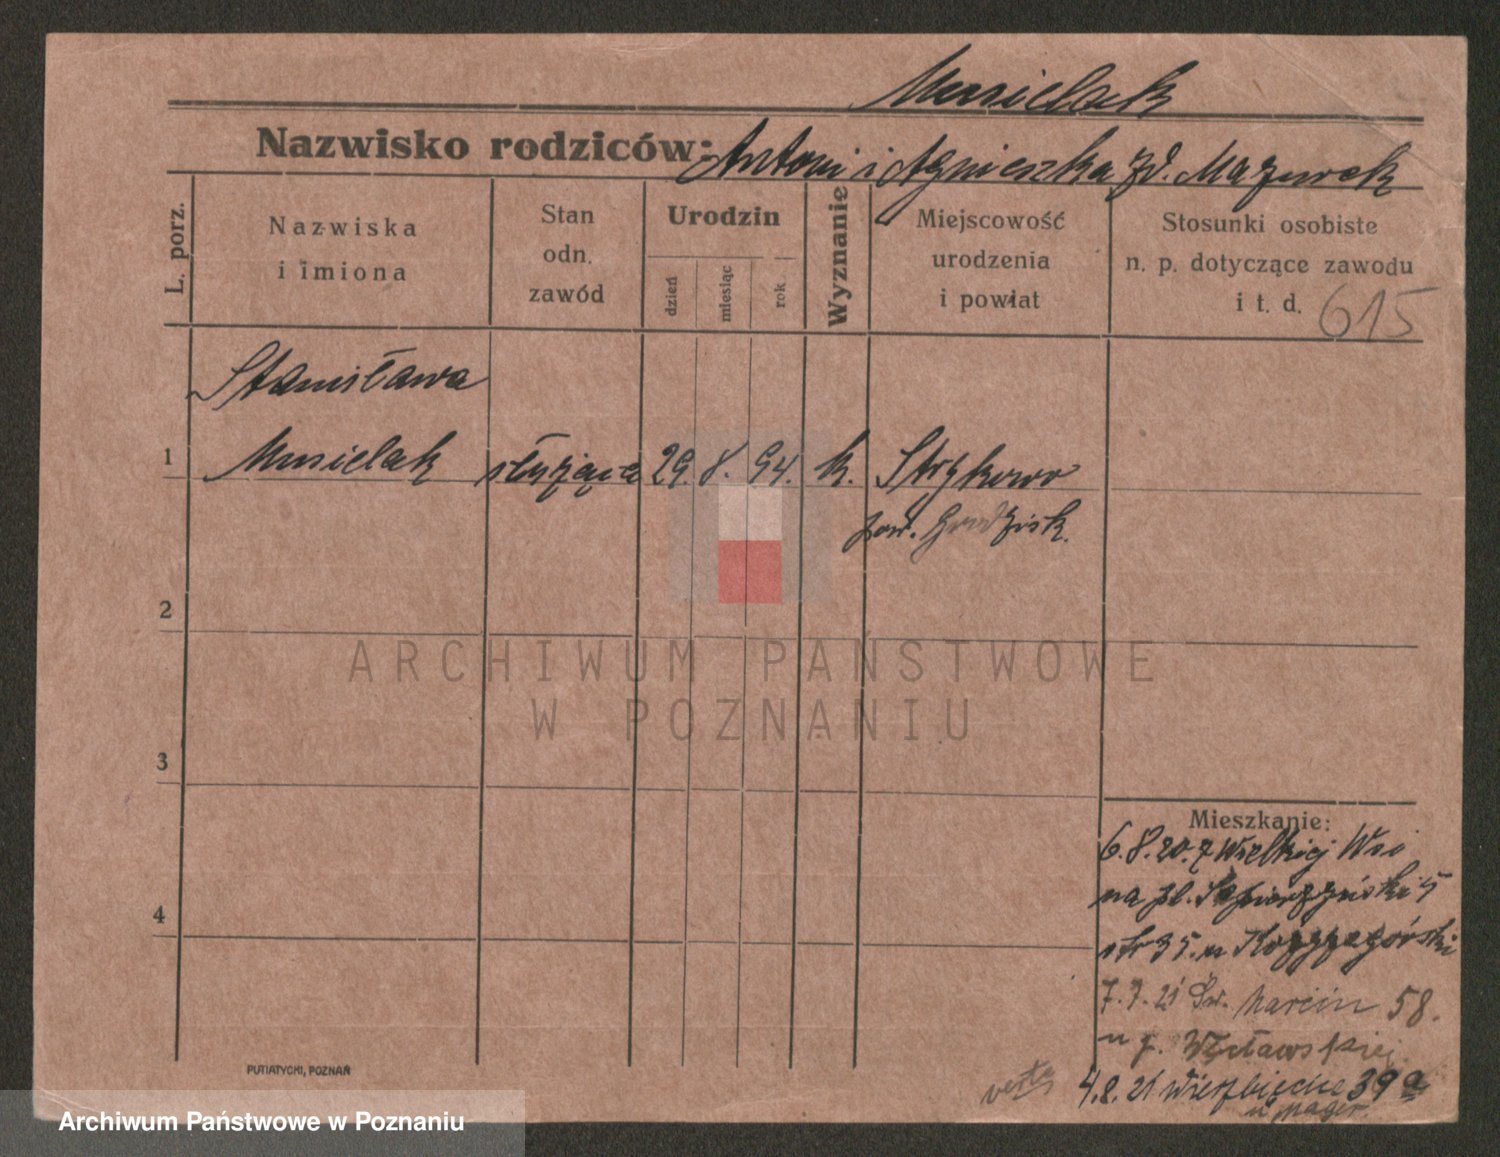 Musielak
Nazwisko rodziców: Antoni i Agnieszka zd. Mazurek
L. porz.
Nazwiska
i imiona
Stan
odn.
zawód
Urodzin
dzień
miesiąc
rok
Wyznanie
Miejscowość
urodzenia
i powiat
Stosunki osobiste
n. p. dotyczące zawodu
i t. d. 615
Stanisława
1 Musielak służąca 29. 8. 94. k. Strykowo
pow. Grodzisk.
2
ARCHIWUM PAŃSTWOWE
W POZNANIU
3
Mieszkanie:
6.8.20. z Wielkiej Wsi
na pl. 5
4
str 35. u
7.7.21 Św. Marcin 58.
u p. Węcławskiej
verte 4.8.21 Wierzbięcice 39a
u Mager.
PUTIATYCKI, POZNAŃ
Archiwum Państwowe w Poznaniu